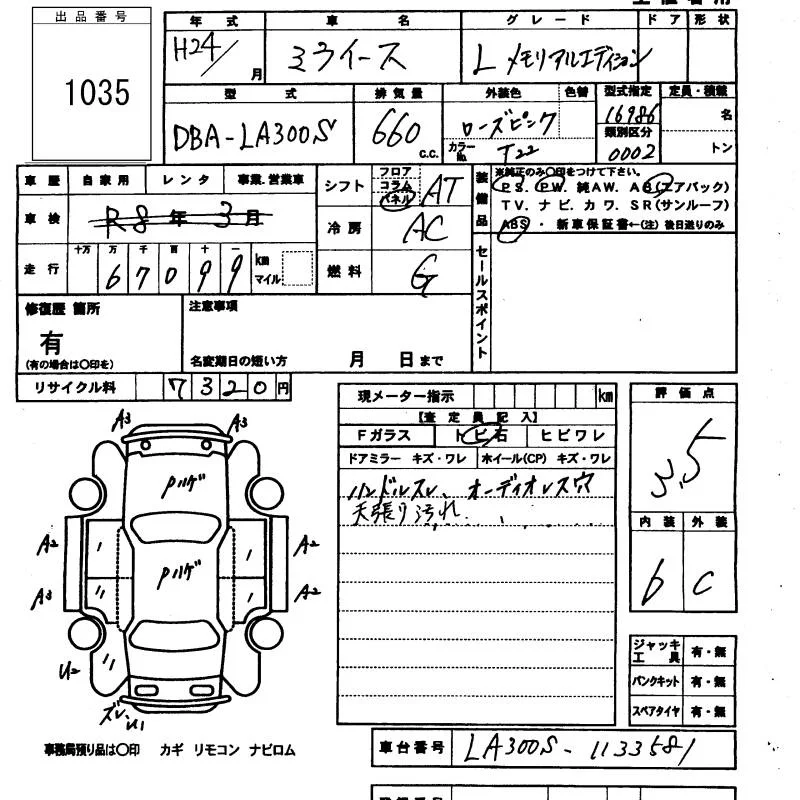 出品番号
1035
年式 車名 グレード ドア 形状
H24/ 月 ミライース L メモリアルエディション
型式 排気量 外装色 色替 型式指定 定員・積載
DBA-LA300S 660 c.c. ローズピンク 16986 名
カラーNo. T22 類別区分 0002 トン
車歴 自家用 レンタ 事業.営業車
車検 R8年3月
走行 十万 万 千 百 十 一
67099 km マイル
シフト フロア コラム パネル AT
冷房 AC
燃料 G
装備品
※純正のみ○印をつけて下さい。
PS. PW. 純AW. AB(エアバック)
TV. ナビ. カワ. SR(サンルーフ)
ABS・新車保証書←(注)後日送りのみ
セールスポイント
修復歴 箇所
有
(有の場合は○印を)
注意事項
名変期日の短い方 月 日まで
リサイクル料 7320円
現メーター指示 km
【査定員記入】
Fガラス トビ石 ヒビワレ
ドアミラー キズ・ワレ ホイール(CP) キズ・ワレ
ハンドルスレ、オーディオレス穴
天張り汚れ
評価点
3.5
内装 外装
b C
ジャッキ工具 有・無
パンクキット 有・無
スペアタイヤ 有・無
A3 A3
Pハゲ
A2 A2
Pハゲ
A3 A2
U2
ズレ、U1
事務局預り品は○印 カギ リモコン ナビロム
車台番号 LA300S-1133581